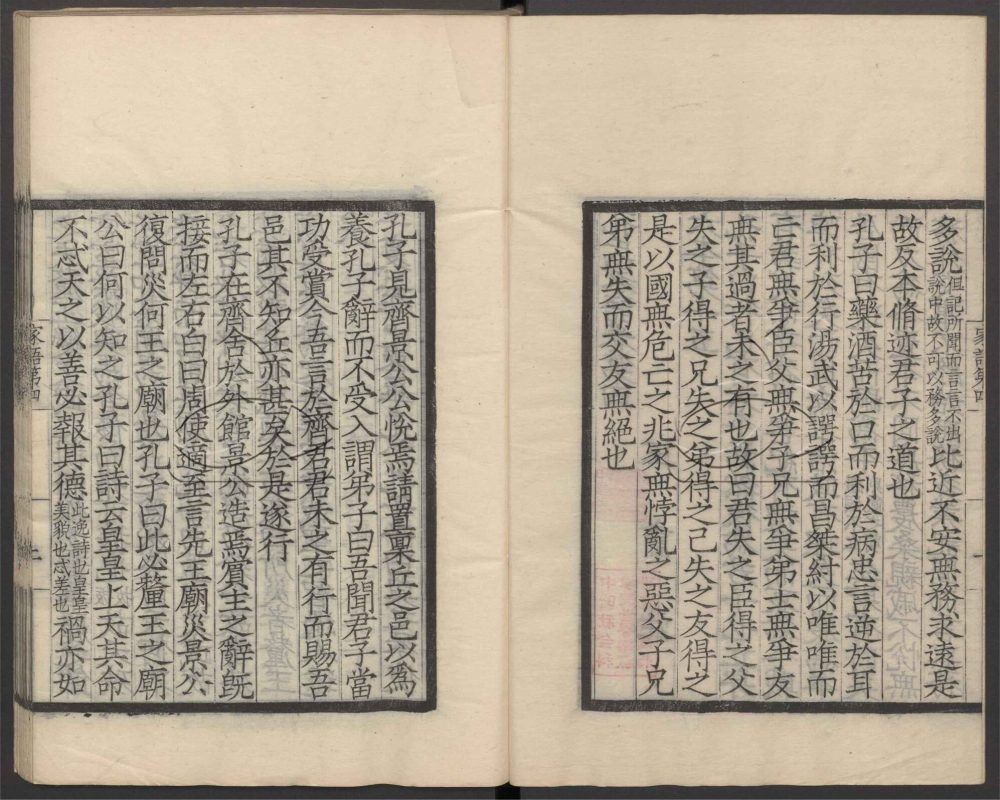 多說但記所聞而言言不出說中故不可以務多說比近不安無務求遠是
故反本脩迹君子之道也
孔子曰藥酒苦於口而利於病忠言逆於耳
而利於行湯武以諤諤而昌桀紂以唯唯而
亡君無爭臣父無爭子兄無爭弟士無爭友
無其過者未之有也故曰君失之臣得之父
失之子得之兄失之弟得之己失之友得之
是以國無危亡之兆家無悖亂之惡父子兄
弟無失而交友無絕也
孔子見齊景公公悅焉請置廩丘之邑以為
養孔子辭而不受入謂弟子曰吾聞君子當
功受賞今吾言於齊君君未之有行而賜吾
邑其不知丘亦甚矣於是遂行
孔子在齊舍於外館景公造焉賓主之辭既
接而左右白曰周使適至言先王廟災景公
復問災何王之廟也孔子曰此必釐王之廟
公曰何以知之孔子曰詩云皇皇上天其命
不忒天之以善必報其德此逸詩也皇皇美貌也忒差也禍亦如
家語第四